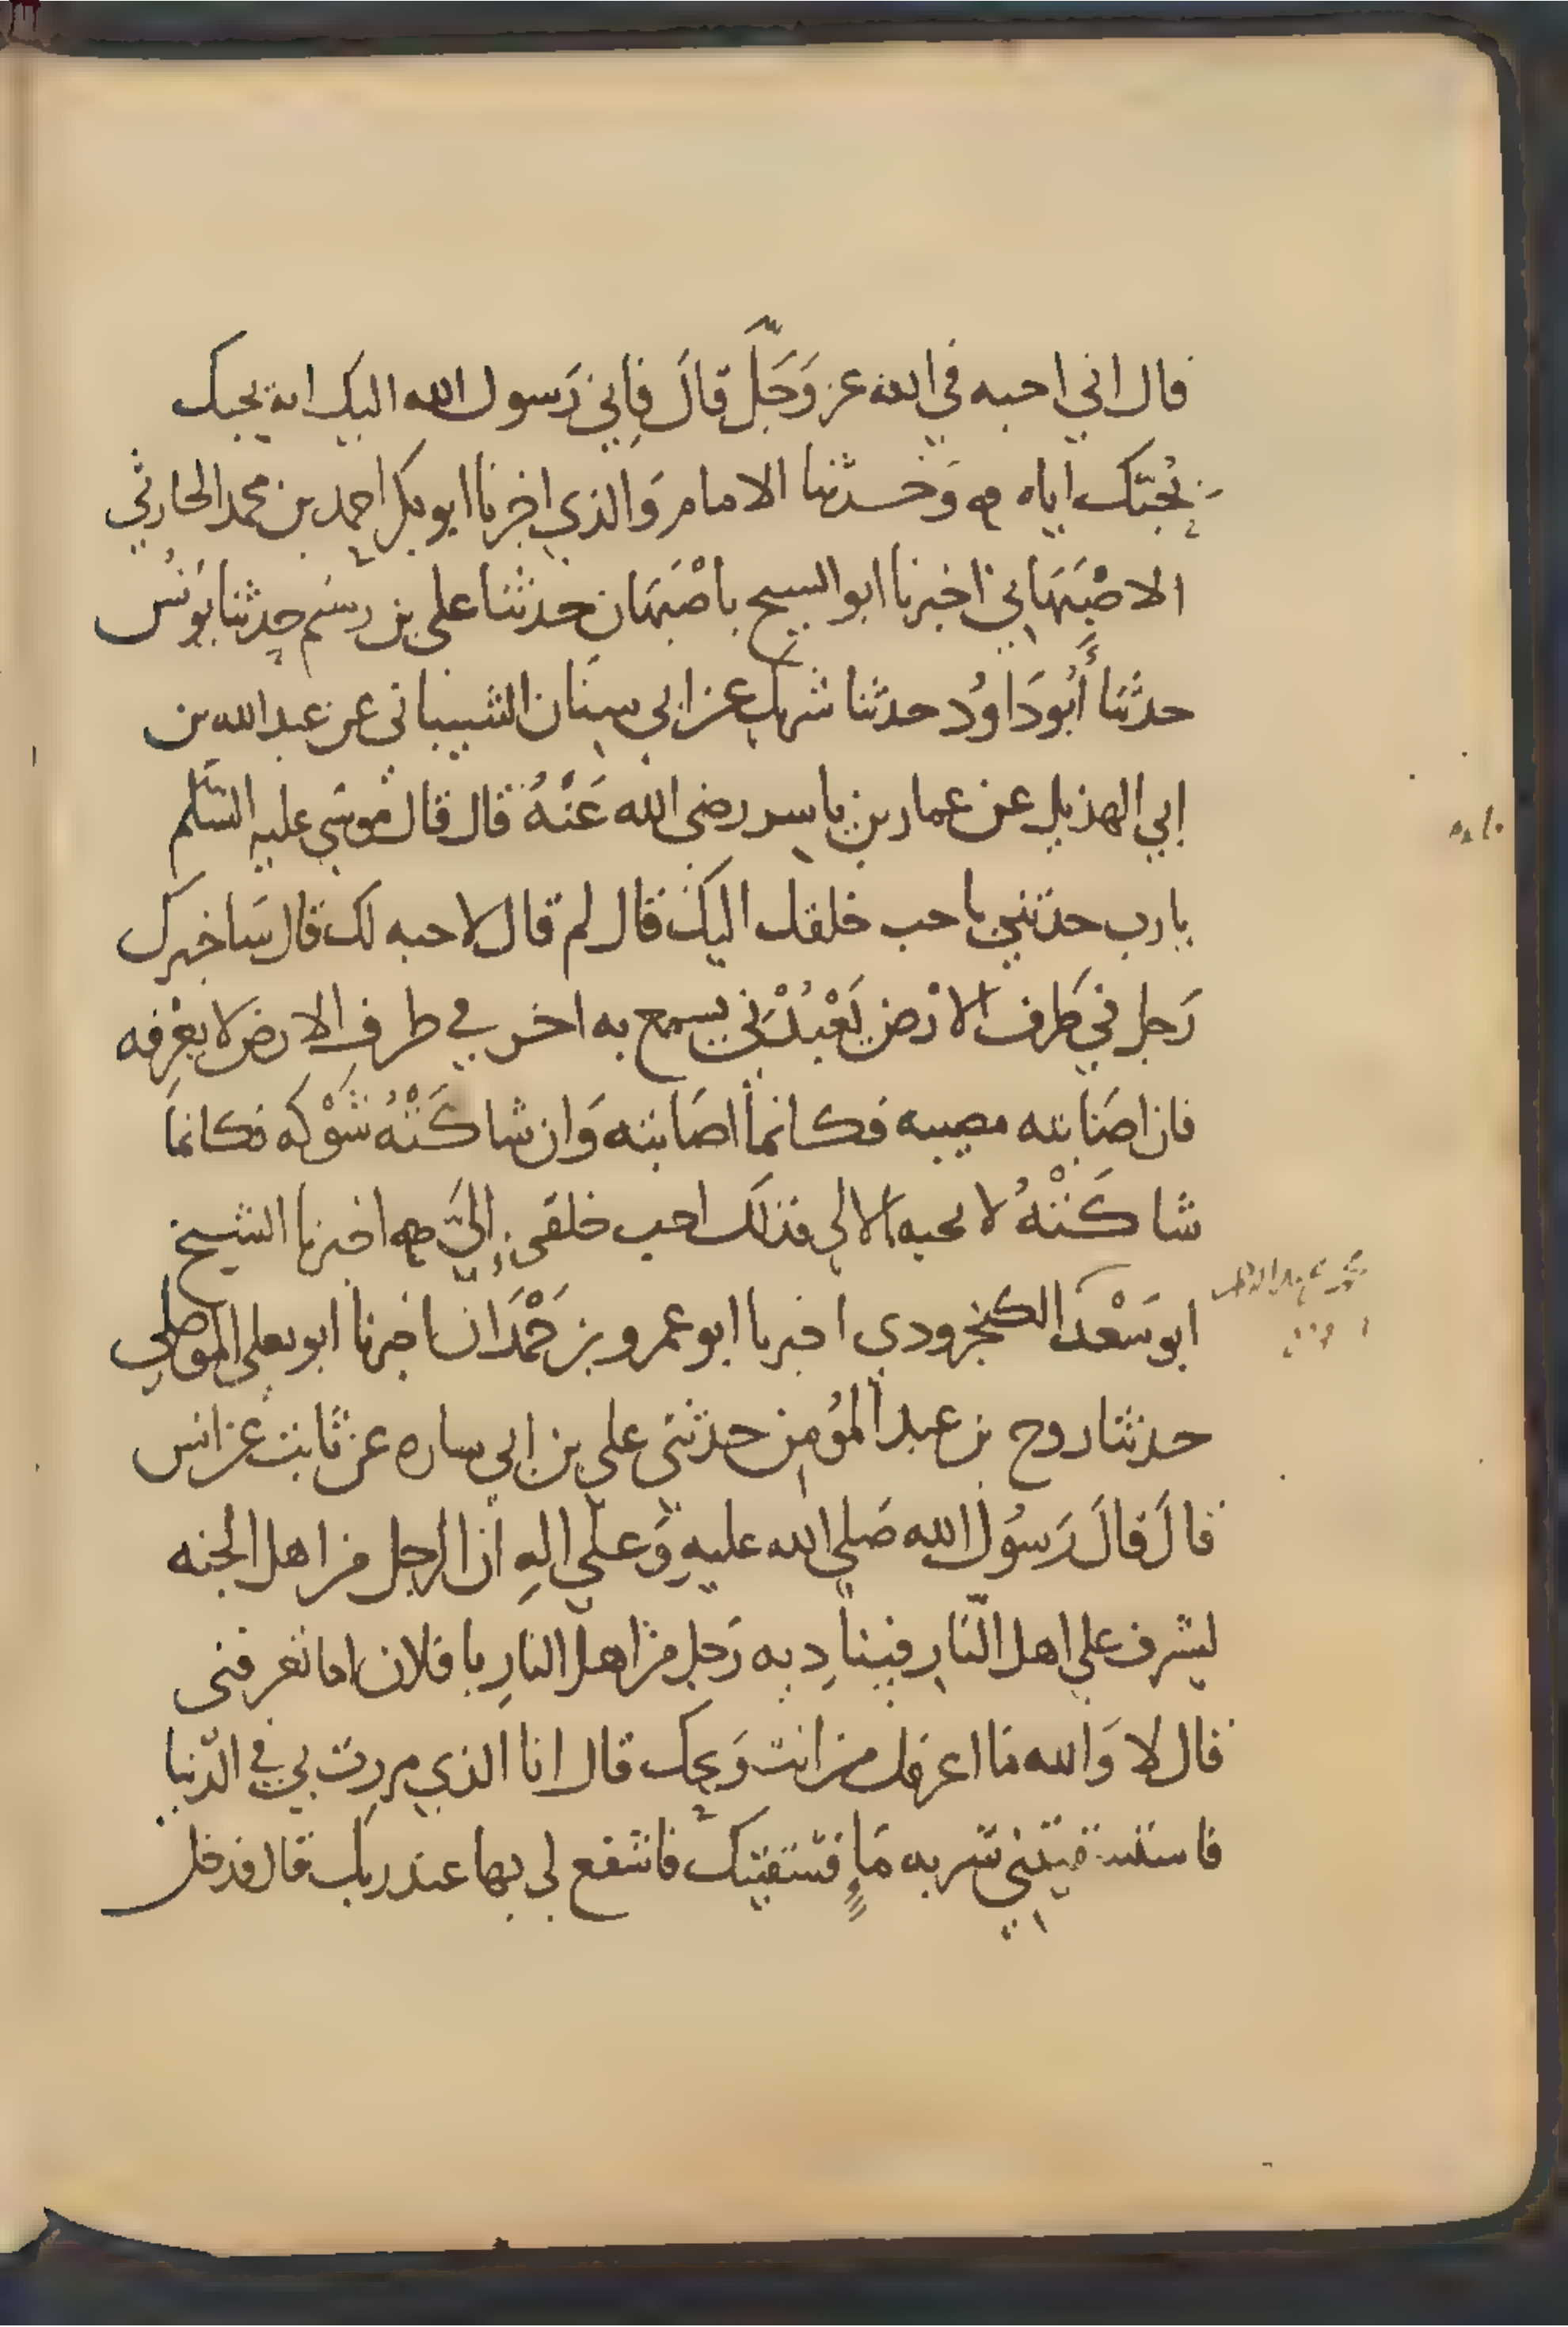 قال اني احبه في الله عز وَجَلَّ قالَ فإني رَسول الله اليك انه يحبك
بحُبّك اياه ه وَحدثنا الامام وَالذي اخبرنا ابو بكر احمد بن محمد الحارثي
الاصْبَهَاني اخبرنا ابو الشيخ باصْبَهان حدثنا علي بن رستم حدثنا يونُس
حدثنا أبُو دَاوُد حدثنا شريك عن ابي سِنَان الشيباني عن عبد الله بن
ابي الهذيل عن عمار بن ياسر رضي الله عَنْهُ قال قال مُوسَى عليه السَّلم
يا رب حدثني باحب خلقك اليك قال لم قال لاحبه لك قال سَاخبرك
رَجل في طَرف الارْض يَعْبُدُني يسمع به اخر في طرف الارض لا يعْرِفه
فان اصَابته مصيبه فكانما اصَابته وَان شاكَتْهُ شَوْكه فكانما
شاكَتْهُ لا يحبه الا لي فذلك احب خلقي إليَّ ه اخبرنا الشيخ
ابو سَعْد الكنجرودي اخبرنا ابو عمرو بن حَمْدَان اخبرنا ابو يعلى الموصلي
حدثنا روح بن عبد المؤمِن حدثني علي بن ابي ساره عن ثابت عن انس
قالَ قالَ رَسُول الله صَلى الله عليهِ وَعلى الهِ ان الرجل من اهل الجنه
ليشرف على اهل النّار فينادِيه رَجل من اهل النارِ يا فلان اما تعرفني
قال لا وَالله مَا اعرفك من انت وَيحك قال انا الذي مررت بي في الدّنيا
فاستسقيتني شربه مَاءٍ فسقيتك فاشفع لي بها عند ربك قال فدخل